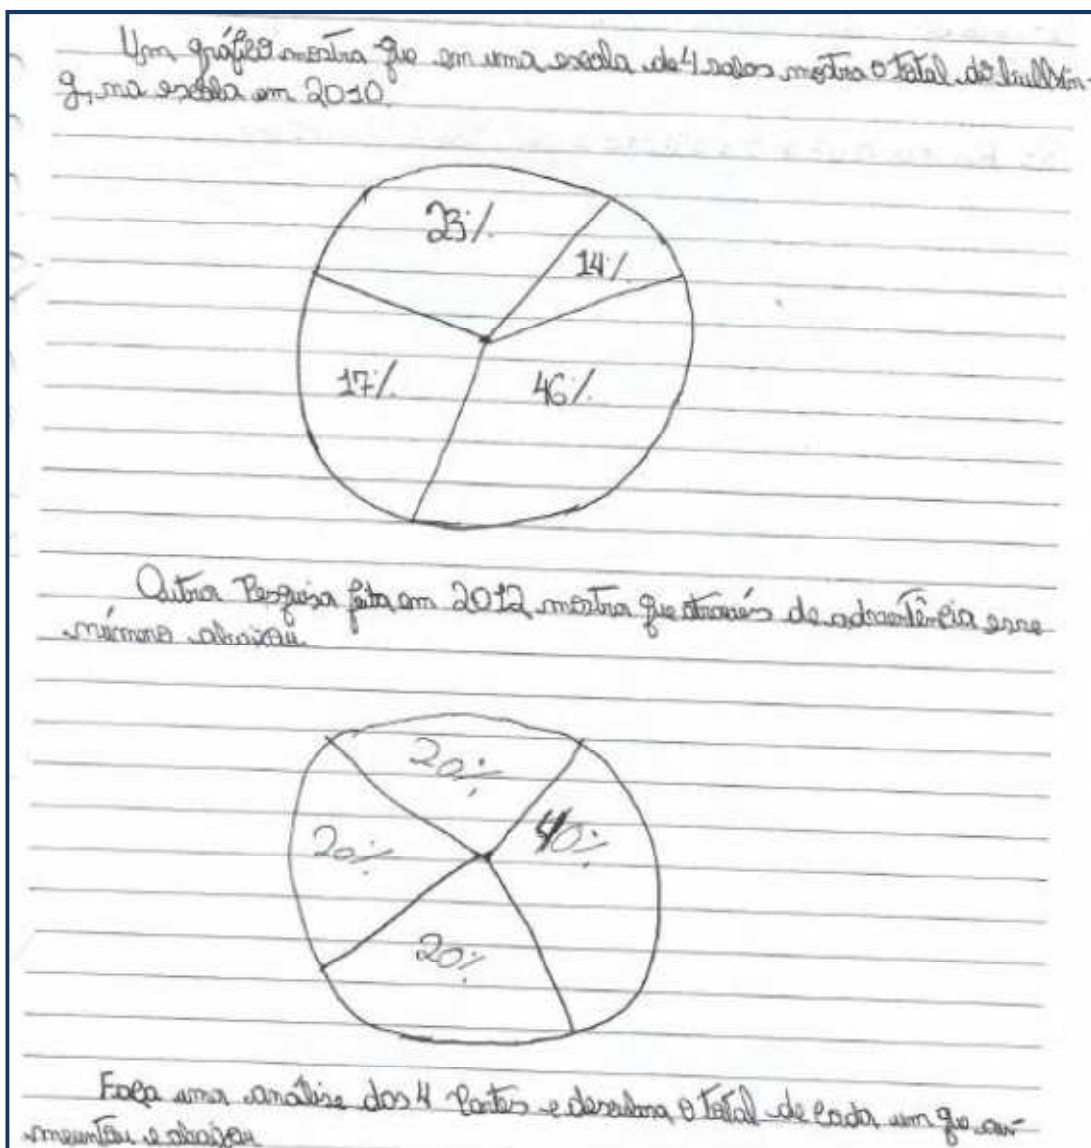 Um gráfico mostra que em uma escola de 4 salas mostra o total do bullyin-
g, na escola em 2010.
23%
14%
17%
46%
Outra Pesquisa feita em 2012 mostra que através de advertência esse
número abaixou
20%
40%
20%
20%
Faça uma análise dos 4 Partes e descubra o total de cada um que au-
mentou e abaixou